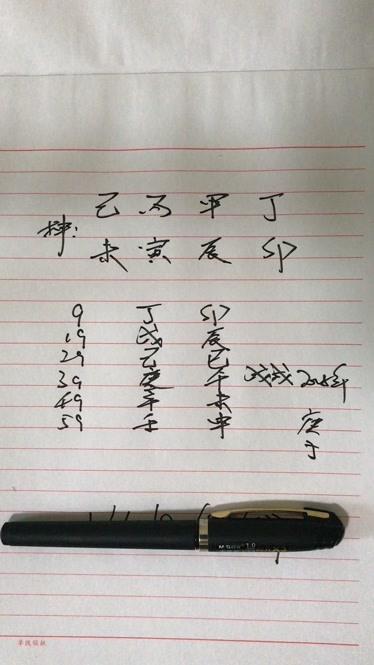 己 丙 甲 丁
坤:
未 寅 辰 卯
9 丁 卯
19 戊 辰
29 己 巳
39 庚 午 戊戌 2018年
49 辛 未
59 壬 申
庚
子